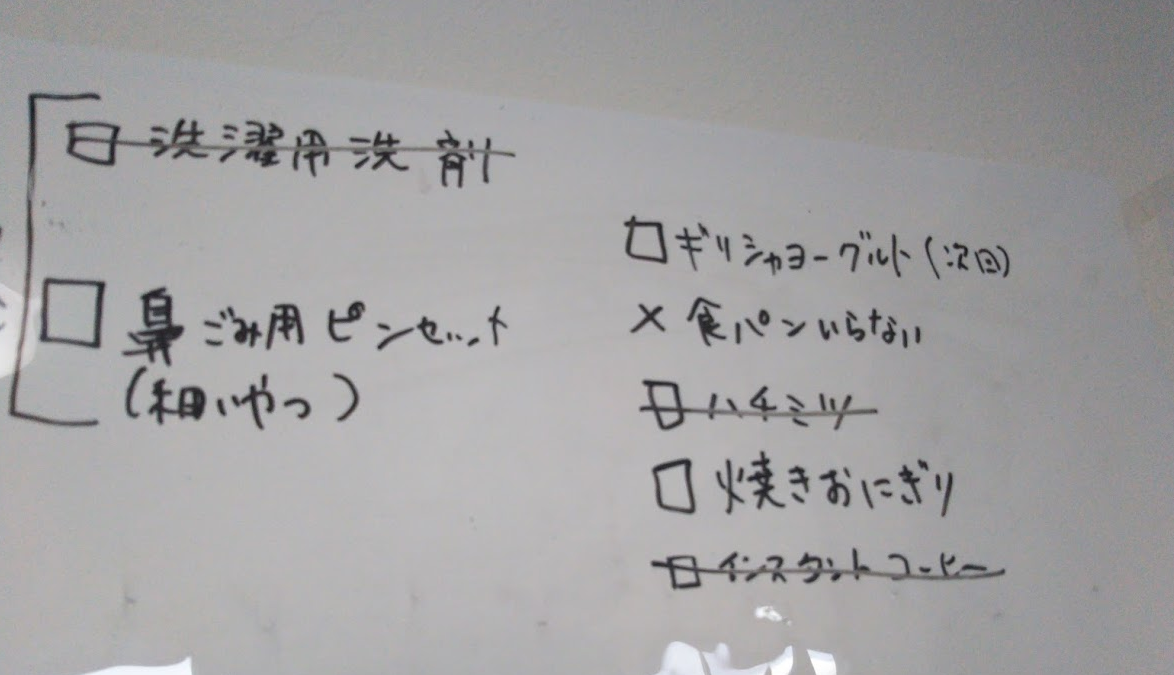 □ 洗濯用洗剤
□ 鼻ごみ用ピンセット
(細いやつ)
□ ギリシャヨーグルト(次回)
× 食パンいらない
□ ハチミツ
□ 焼きおにぎり
□ インスタントコーヒー